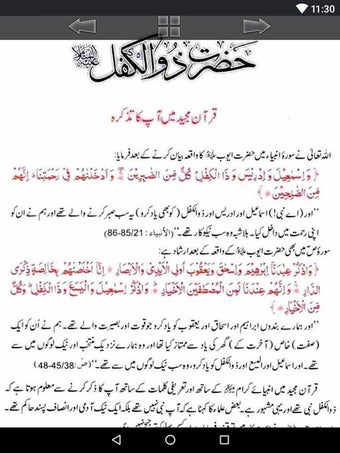 11:30
حضرت ذوالکفل علیہ السلام
قرآن مجید میں آپ کا تذکرہ
اللہ تعالیٰ نے سورۂ انبیاء میں حضرت ایوب علیہ السلام کا واقعہ بیان کرنے کے بعد فرمایا:
﴿ وَإِسْمٰعِيْلَ وَإِدْرِيْسَ وَذَا الْكِفْلِ ۖ كُلٌّ مِّنَ الصّٰبِرِيْنَ ۞ وَأَدْخَلْنٰهُمْ فِيْ رَحْمَتِنَا ۖ إِنَّهُمْ
مِّنَ الصّٰلِحِيْنَ ﴾
’’اور (اے نبی!) اسماعیل اور ادریس اور ذوالکفل (کو بھی یاد کرو) یہ سب صبر کرنے والے تھے اور ہم نے ان کو
اپنی رحمت میں داخل کیا۔ بلاشبہ وہ سب نیکوکار تھے۔‘‘ (الأنبیاء: 86-85/21)
سورۂ صٓ میں بھی حضرت ایوب علیہ السلام کے واقعہ کے بعد ارشاد ہے:
﴿ وَاذْكُرْ عِبٰدَنَا إِبْرٰهِيْمَ وَإِسْحٰقَ وَيَعْقُوْبَ أُولِي الْأَيْدِيْ وَالْأَبْصَارِ ۞ إِنَّا أَخْلَصْنٰهُمْ بِخَالِصَةٍ ذِكْرَى
الدَّارِ ۞ وَإِنَّهُمْ عِنْدَنَا لَمِنَ الْمُصْطَفَيْنَ الْأَخْيَارِ ۞ وَاذْكُرْ إِسْمٰعِيْلَ وَالْيَسَعَ وَذَا الْكِفْلِ ۖ وَكُلٌّ
مِّنَ الْأَخْيَارِ ﴾
’’اور ہمارے بندوں ابراہیم اور اسحاق اور یعقوب کو یاد کرو جو قوت اور بصیرت والے تھے۔ ہم نے اُن کو ایک
(صفت) خاص (آخرت کے) گھر کی یاد سے ممتاز کیا تھا اور وہ ہمارے نزدیک منتخب اور نیک لوگوں میں سے
تھے۔ اور اسماعیل اور الیسع اور ذوالکفل کو یاد کرو، وہ سب نیک لوگوں میں سے تھے۔‘‘ (صٓ: 48-45/38)
قرآن مجید میں انبیائے کرام علیہم السلام کے ساتھ اور تعریفی کلمات کے ساتھ آپ کا ذکر کرنے سے معلوم ہوتا ہے کہ
ذوالکفل نبی تھے اور یہی مشہور ہے۔ بعض علماء کا کہنا ہے کہ آپ نبی نہیں تھے بلکہ ایک نیک آدمی اور انصاف پسند حاکم تھے۔